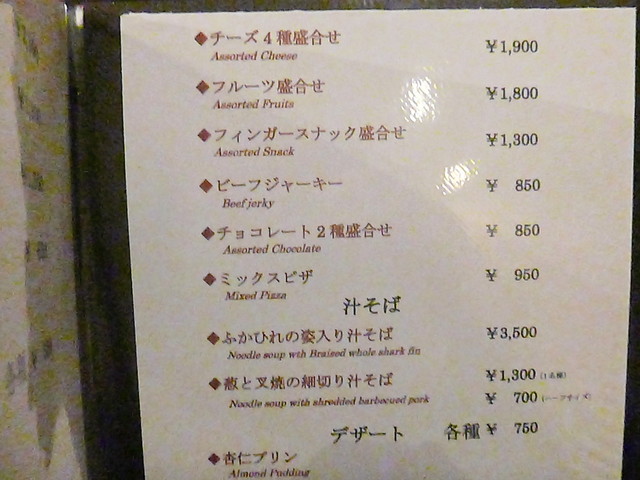 ◆チーズ4種盛合せ ¥1,900
Assorted Cheese
◆フルーツ盛合せ ¥1,800
Assorted Fruits
◆フィンガースナック盛合せ ¥1,300
Assorted Snack
◆ビーフジャーキー ¥ 850
Beef jerky
◆チョコレート2種盛合せ ¥ 850
Assorted Chocolate
◆ミックスピザ ¥ 950
Mixed Pizza
汁そば
◆ふかひれの姿入り汁そば ¥3,500
Noodle soup wth Braised whole shark fin
◆葱と叉焼の細切り汁そば ¥1,300 (1名様)
Noodle soup with shredded barbecued pork ¥ 700 (ハーフサイズ)
デザート 各種 ¥ 750
◆杏仁プリン
Almond Pudding